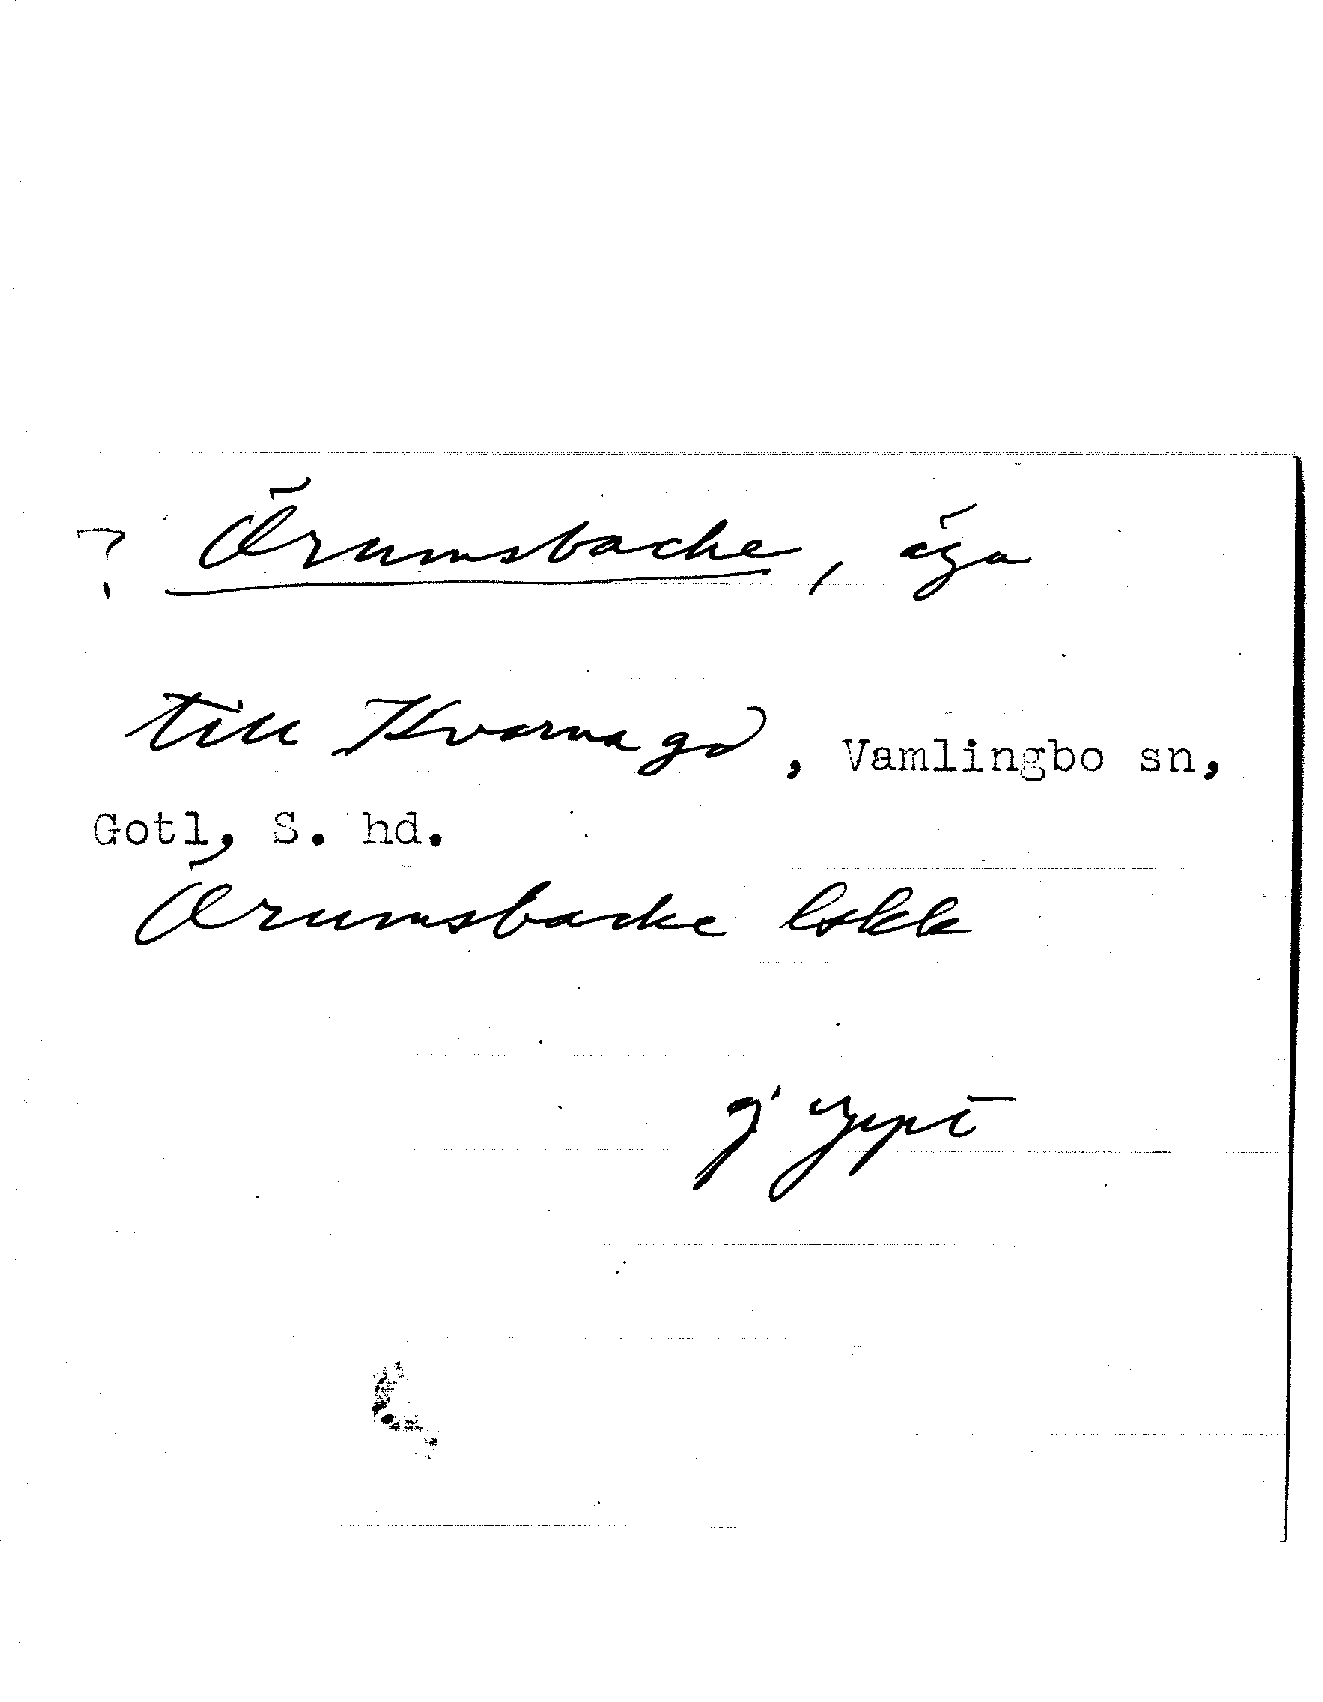 ? Örumsbacke, äga
till Kvarna gd, Vamlingbo sn,
Gotl, S. hd.
Örumsbacke lskk
ej uppt